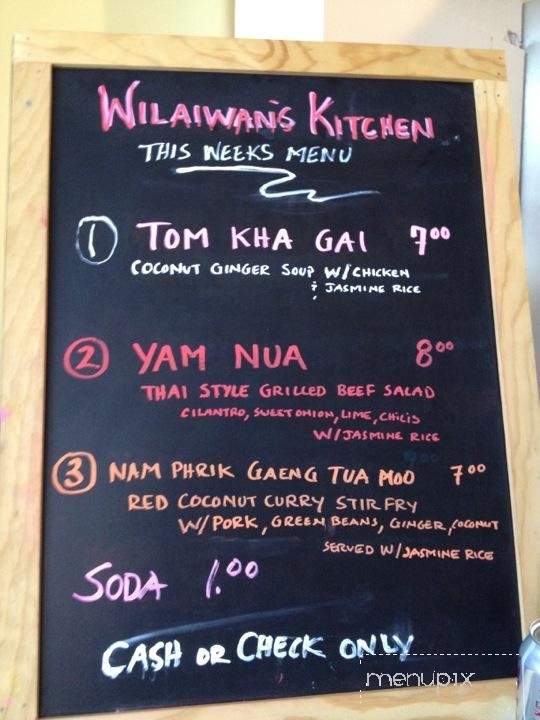 WILAIWAN'S KITCHEN
THIS WEEKS MENU
1 TOM KHA GAI 7.00
COCONUT GINGER SOUP W/CHICKEN
& JASMINE RICE
2 YAM NUA 8.00
THAI STYLE GRILLED BEEF SALAD
CILANTRO, SWEET ONION, LIME, CHILIS
W/JASMINE RICE
3 NAM PHRIK GAENG TUA MOO 7.00
RED COCONUT CURRY STIR FRY
W/PORK, GREEN BEANS, GINGER, COCONUT
SERVED W/JASMINE RICE
SODA 1.00
CASH OR CHECK ONLY
menupix